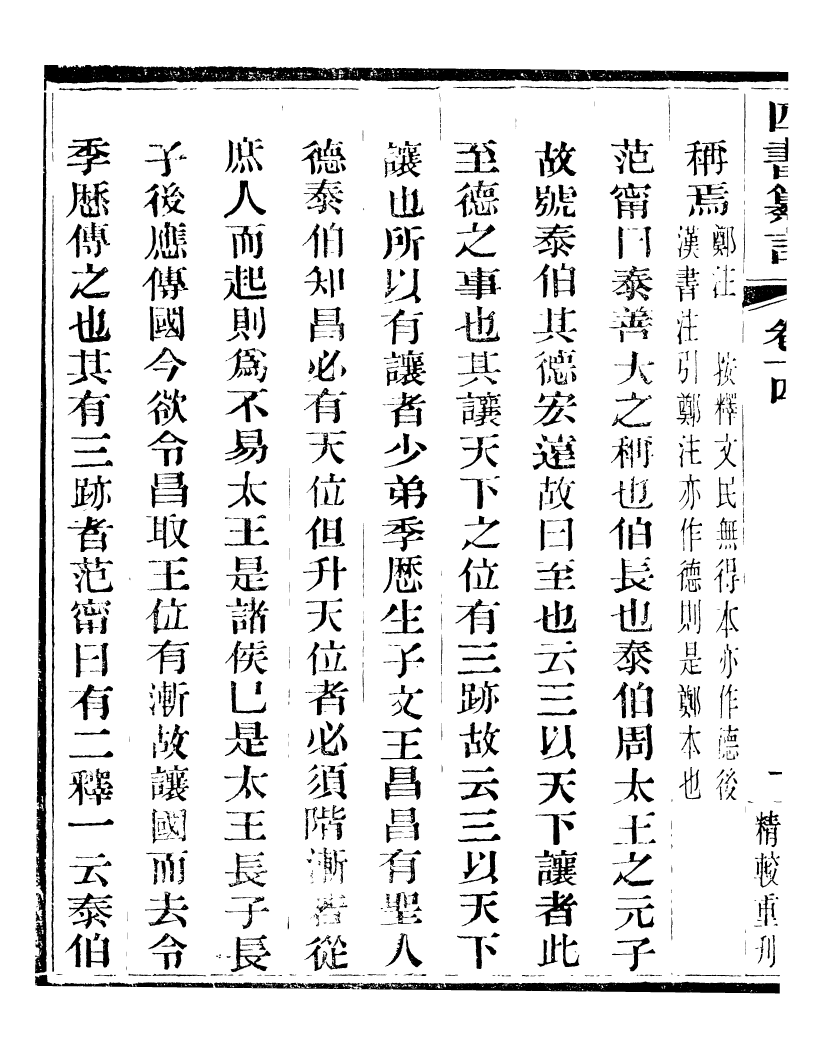 四書纂言 卷十四 一 精較重刊
稱焉鄭注 按釋文民無得本亦作德後
漢書注引鄭注亦作德則是鄭本也
范甯曰泰善大之稱也伯長也泰伯周太王之元子
故號泰伯其德宏遠故曰至也云三以天下讓者此
至德之事也其讓天下之位有三跡故云三以天下
讓也所以有讓者少弟季歷生子文王昌昌有聖人
德泰伯知昌必有天位但升天位者必須階漸若從
庶人而起則為不易太王是諸侯已是太王長子長
子後應傳國今欲令昌取王位有漸故讓國而去令
季歷傳之也其有三跡者范甯曰有二釋一云泰伯